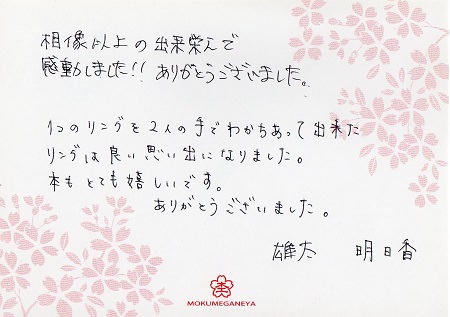 想像以上の出来栄えで
感動しました!! ありがとうございました。
1つのリングを2人の手でわかちあって出来た
リングは良い思い出になりました。
本もとても嬉しいです。
ありがとうございました。
雄太 明日香
MOKUMEGANEYA